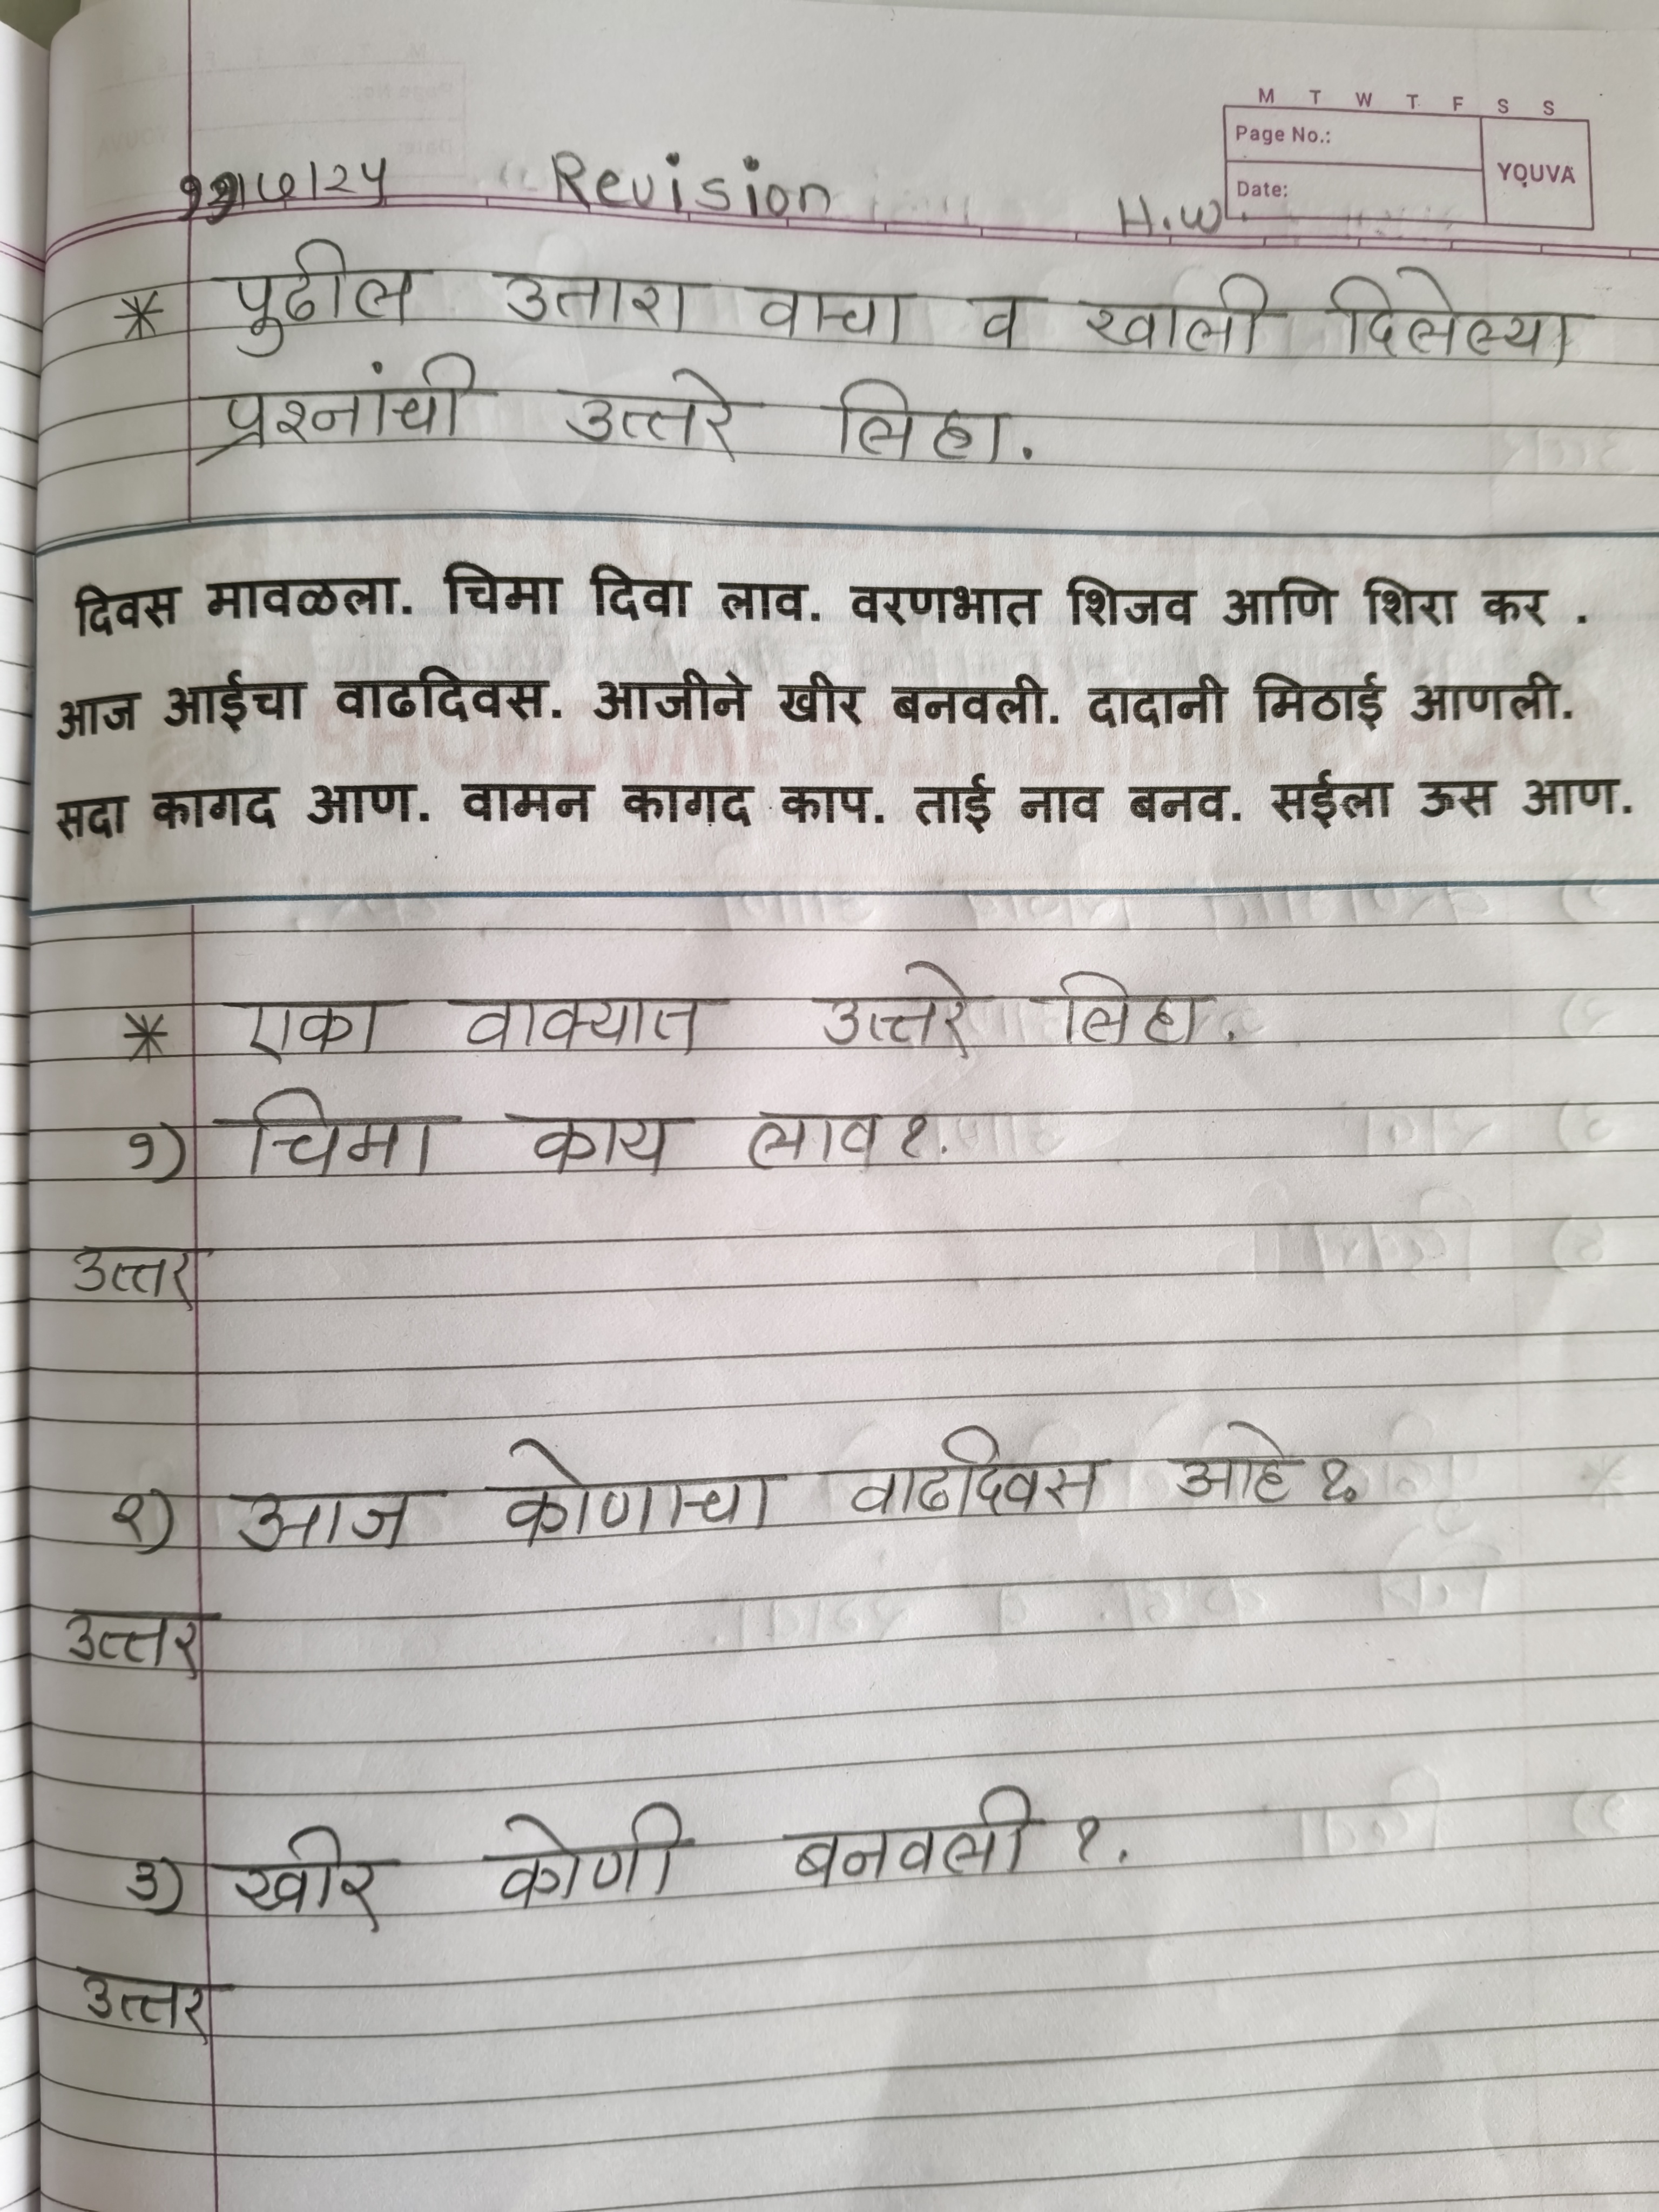 M T W T F S S
Page No.:
YOUVA
Date:
७/२५ Revision
H.W.
* पुढील उतारा वाचा व खाली दिलेल्या
प्रश्नांची उत्तरे लिहा.
दिवस मावळला. चिमा दिवा लाव. वरणभात शिजव आणि शिरा कर .
आज आईचा वाढदिवस. आजीने खीर बनवली. दादानी मिठाई आणली.
सदा कागद आण. वामन कागद काप. ताई नाव बनव. सईला ऊस आण.
* एका वाक्यात उत्तरे लिहा.
१) चिमा काय लाव?
उत्तर
२) आज कोणाचा वाढदिवस आहे?
उत्तर
३) खीर कोणी बनवली?
उत्तर